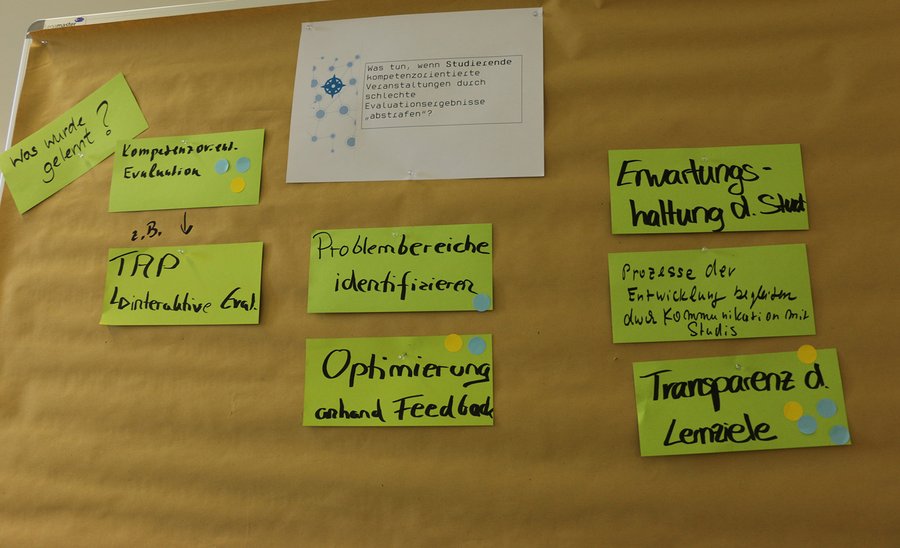 Was tun, wenn Studierende
kompetenzorientierte
Veranstaltungen durch
schlechte
Evaluationsergebnisse
„abstrafen“?
Was wurde
gelernt?
Kompetenzorient.
Evaluation
z.B. ↓
TAP
interaktive Eval.
Problembereiche
identifizieren
Optimierung
anhand Feedback
Erwartungs-
haltung d. Stud
Prozesse der
Entwicklung begleiten
durch Kommunikation mit
Studis
Transparenz d.
Lernziele